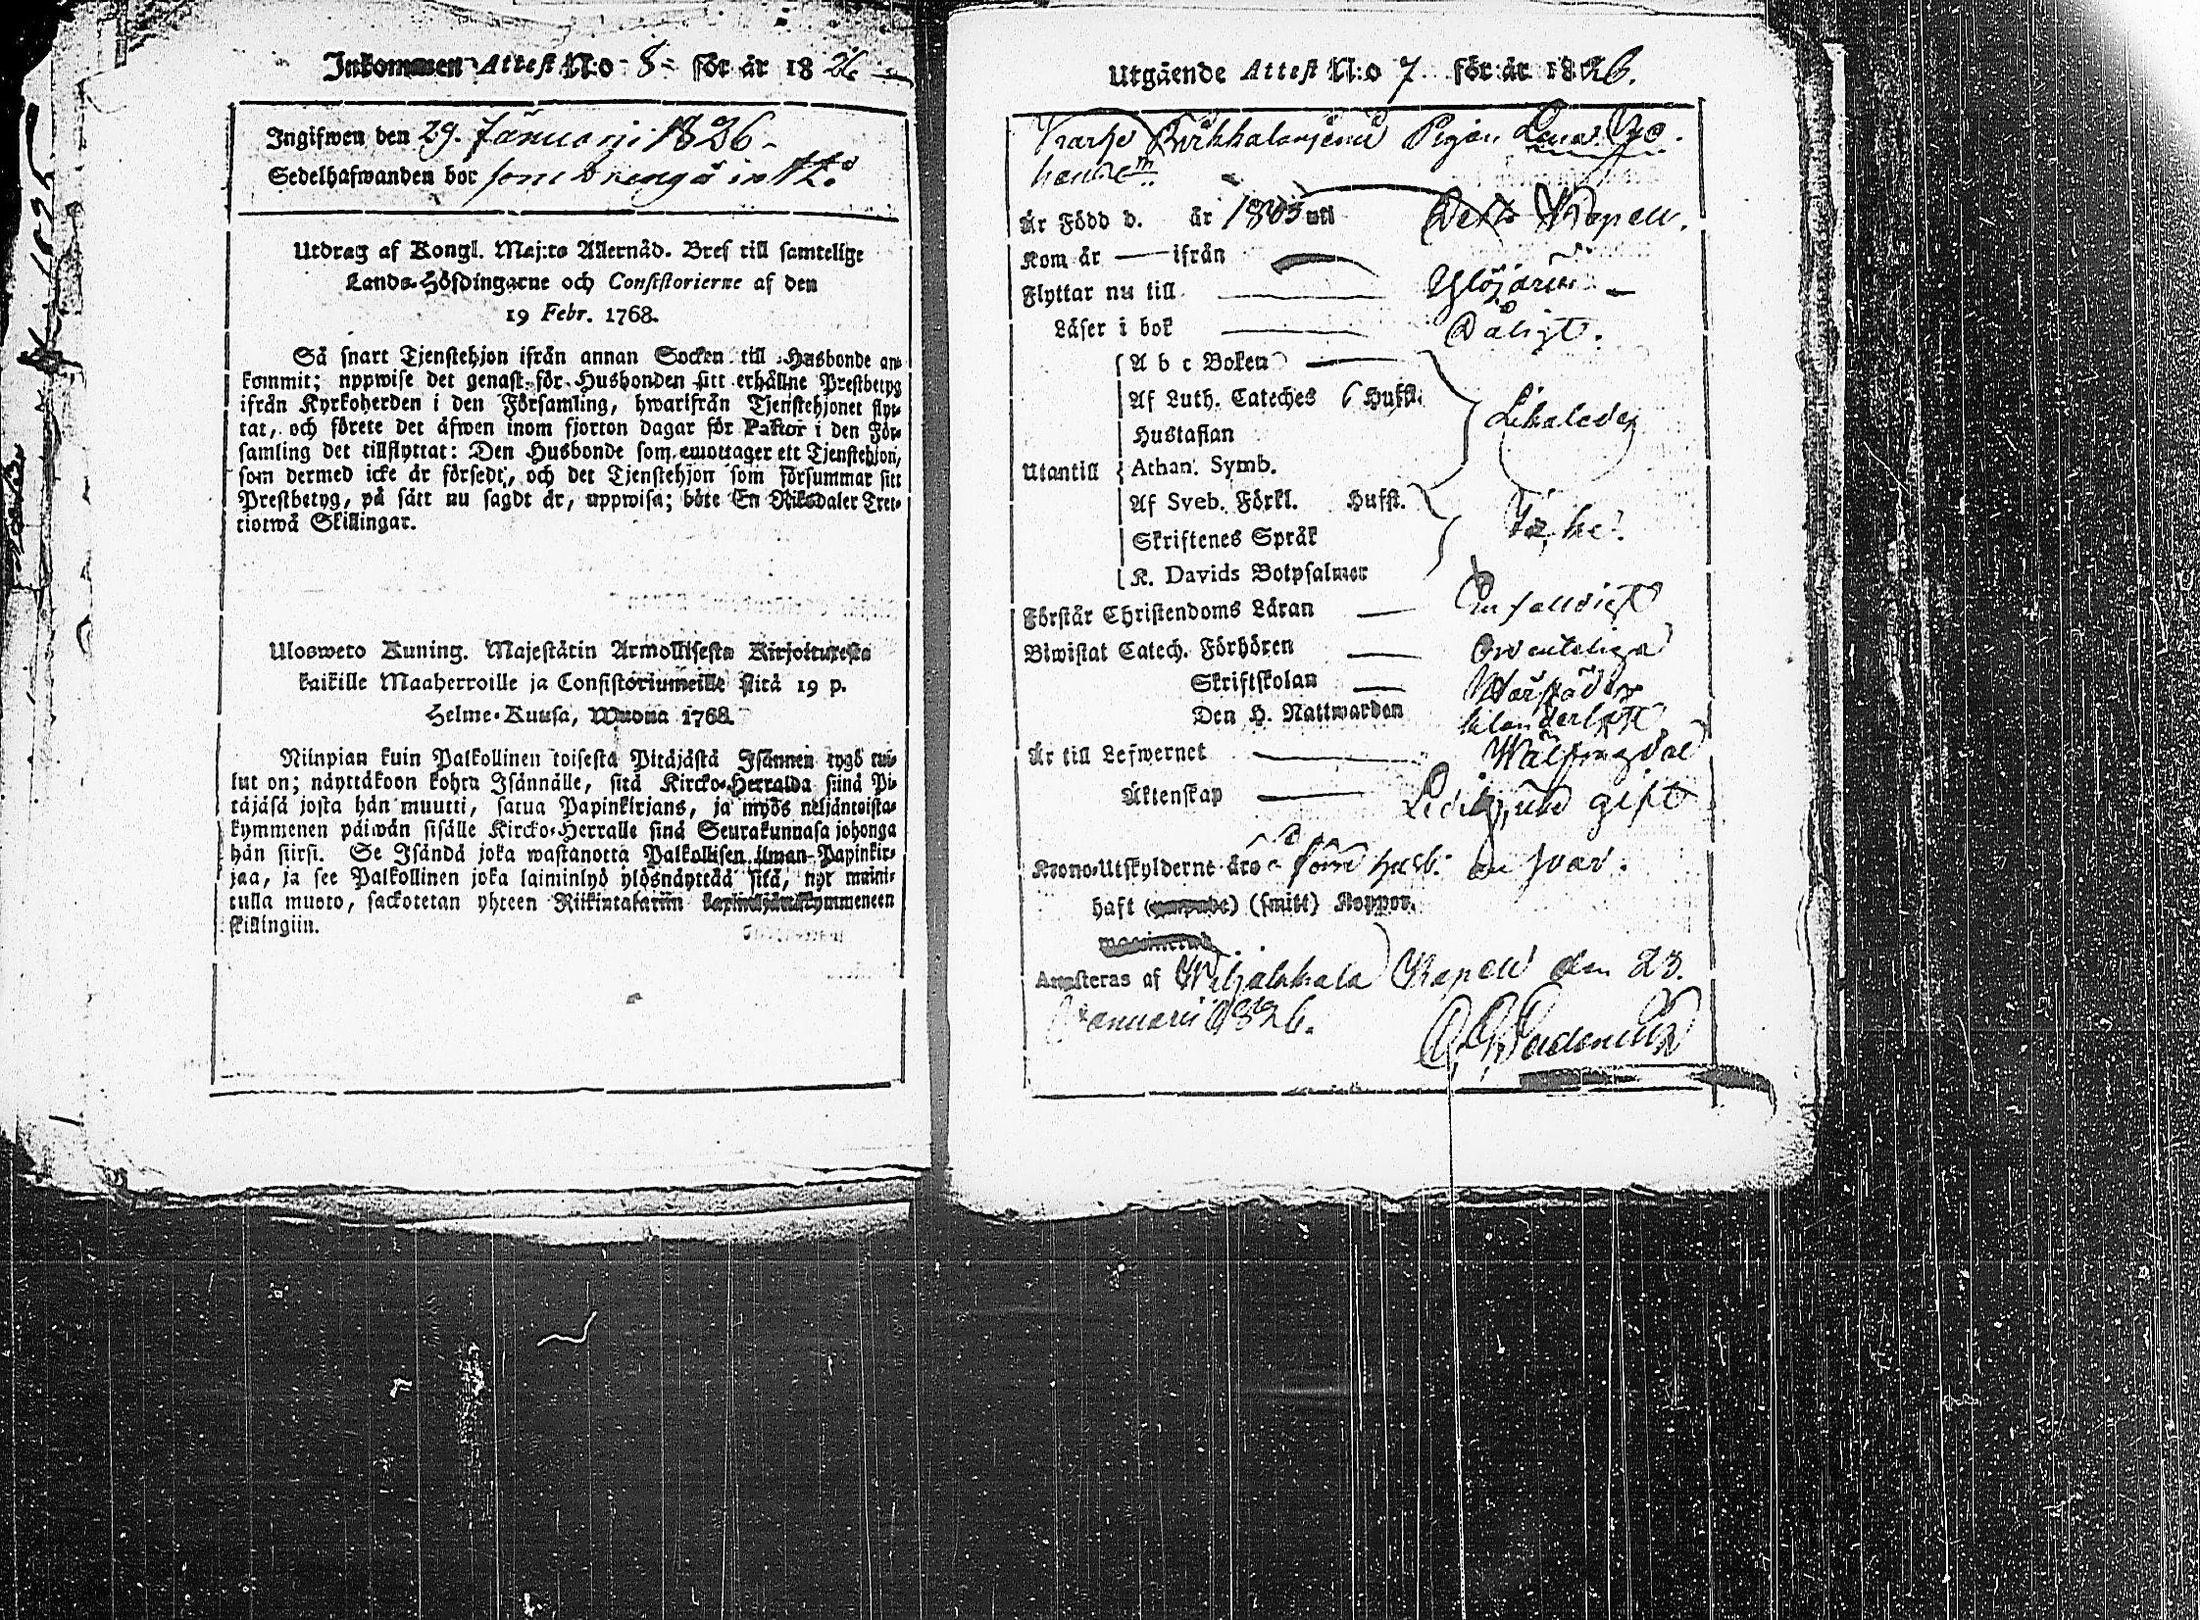 Inkommen Attest N:o 8 för år 1826
Ingifwen den 29. Januarii 1826
Sedelhafwanden bor
Utdrag af Kongl. Maj:ts Allernåd. Bref till samtelige
Lands-Höfdingarne och Consistorierne af den
19 Febr. 1768.
Så snart Tjenstehjon ifrån annan Socken till Husbonde an-
kommit; uppwise det genast för Husbonden sitt erhållne Prestbetyg
ifrån Kyrkoherden i den Församling, hwarifrån Tjenstehjonet flyt-
tat, och förete det äfwen inom fjorton dagar för Pastor i den För-
samling det tillflyttat: Den Husbonde som emottager ett Tjenstehjon,
som dermed icke är försedt, och det Tjenstehjon som försummar sitt
Prestbetyg, på sätt nu sagdt är, uppwisa; böte En Riksdaler Tret-
tiotwå Skillingar.
Ulosweto Kuning. Majestätin Armollisesta Kirjoituxesta
kaikille Maaherroille ja Consistoriumeille siitä 19 p.
Helme-Kuusa, Wuona 1768.
Niinpian kuin Palkollinen toisesta Pitäjästä Isännen tygö tul-
lut on; näyttäkoon kohta Isännälle, sitä Kircko-Herralda siinä Pi-
täjäsä josta hän muutti, satua Papinkirjans, ja myös neljäntoista-
kymmenen päiwän sisälle Kircko-Herralle siinä Seurakunnasa johonga
hän siirsi. Se Isändä joka wastanotta Palkollisen ilman Papinkir-
jaa, ja see Palkollinen joka laiminlyö ylösnäyttää sitä, nyt maini-
tulla muoto, sackotetan yhteen Riikintalariin
skillingiin.
Utgående Attest N:o 7 för år 1826.
Pigan Lena Jo-
hansd:r
Är Född d. år 1805 uti Detta Kapell.
Kom år — ifrån
Flyttar nu till — Ylöjärvi
Läser i bok — Dåligt.
A b c Boken
Af Luth. Cateches 6 Hufst.
Hustaflan
Utantill Athan. Symb.
Af Sveb. Förkl. Hufst.
Skriftenes Språk
K. Davids Botpsalmer
Förstår Christendoms Läran — Enfaldigt
Biwistat Catech. Förhören — Ordenteliga
Skriftskolan —
Den H. Nattwarden
Är till Lefwernet — Wälfrägdad
Äktenskap — Ledig, från gift
Krono-Utskylderne äro
haft (smitt) Koppor.
Attesteras af Wiljakkala Kapell den 23.
Januarii 1826.